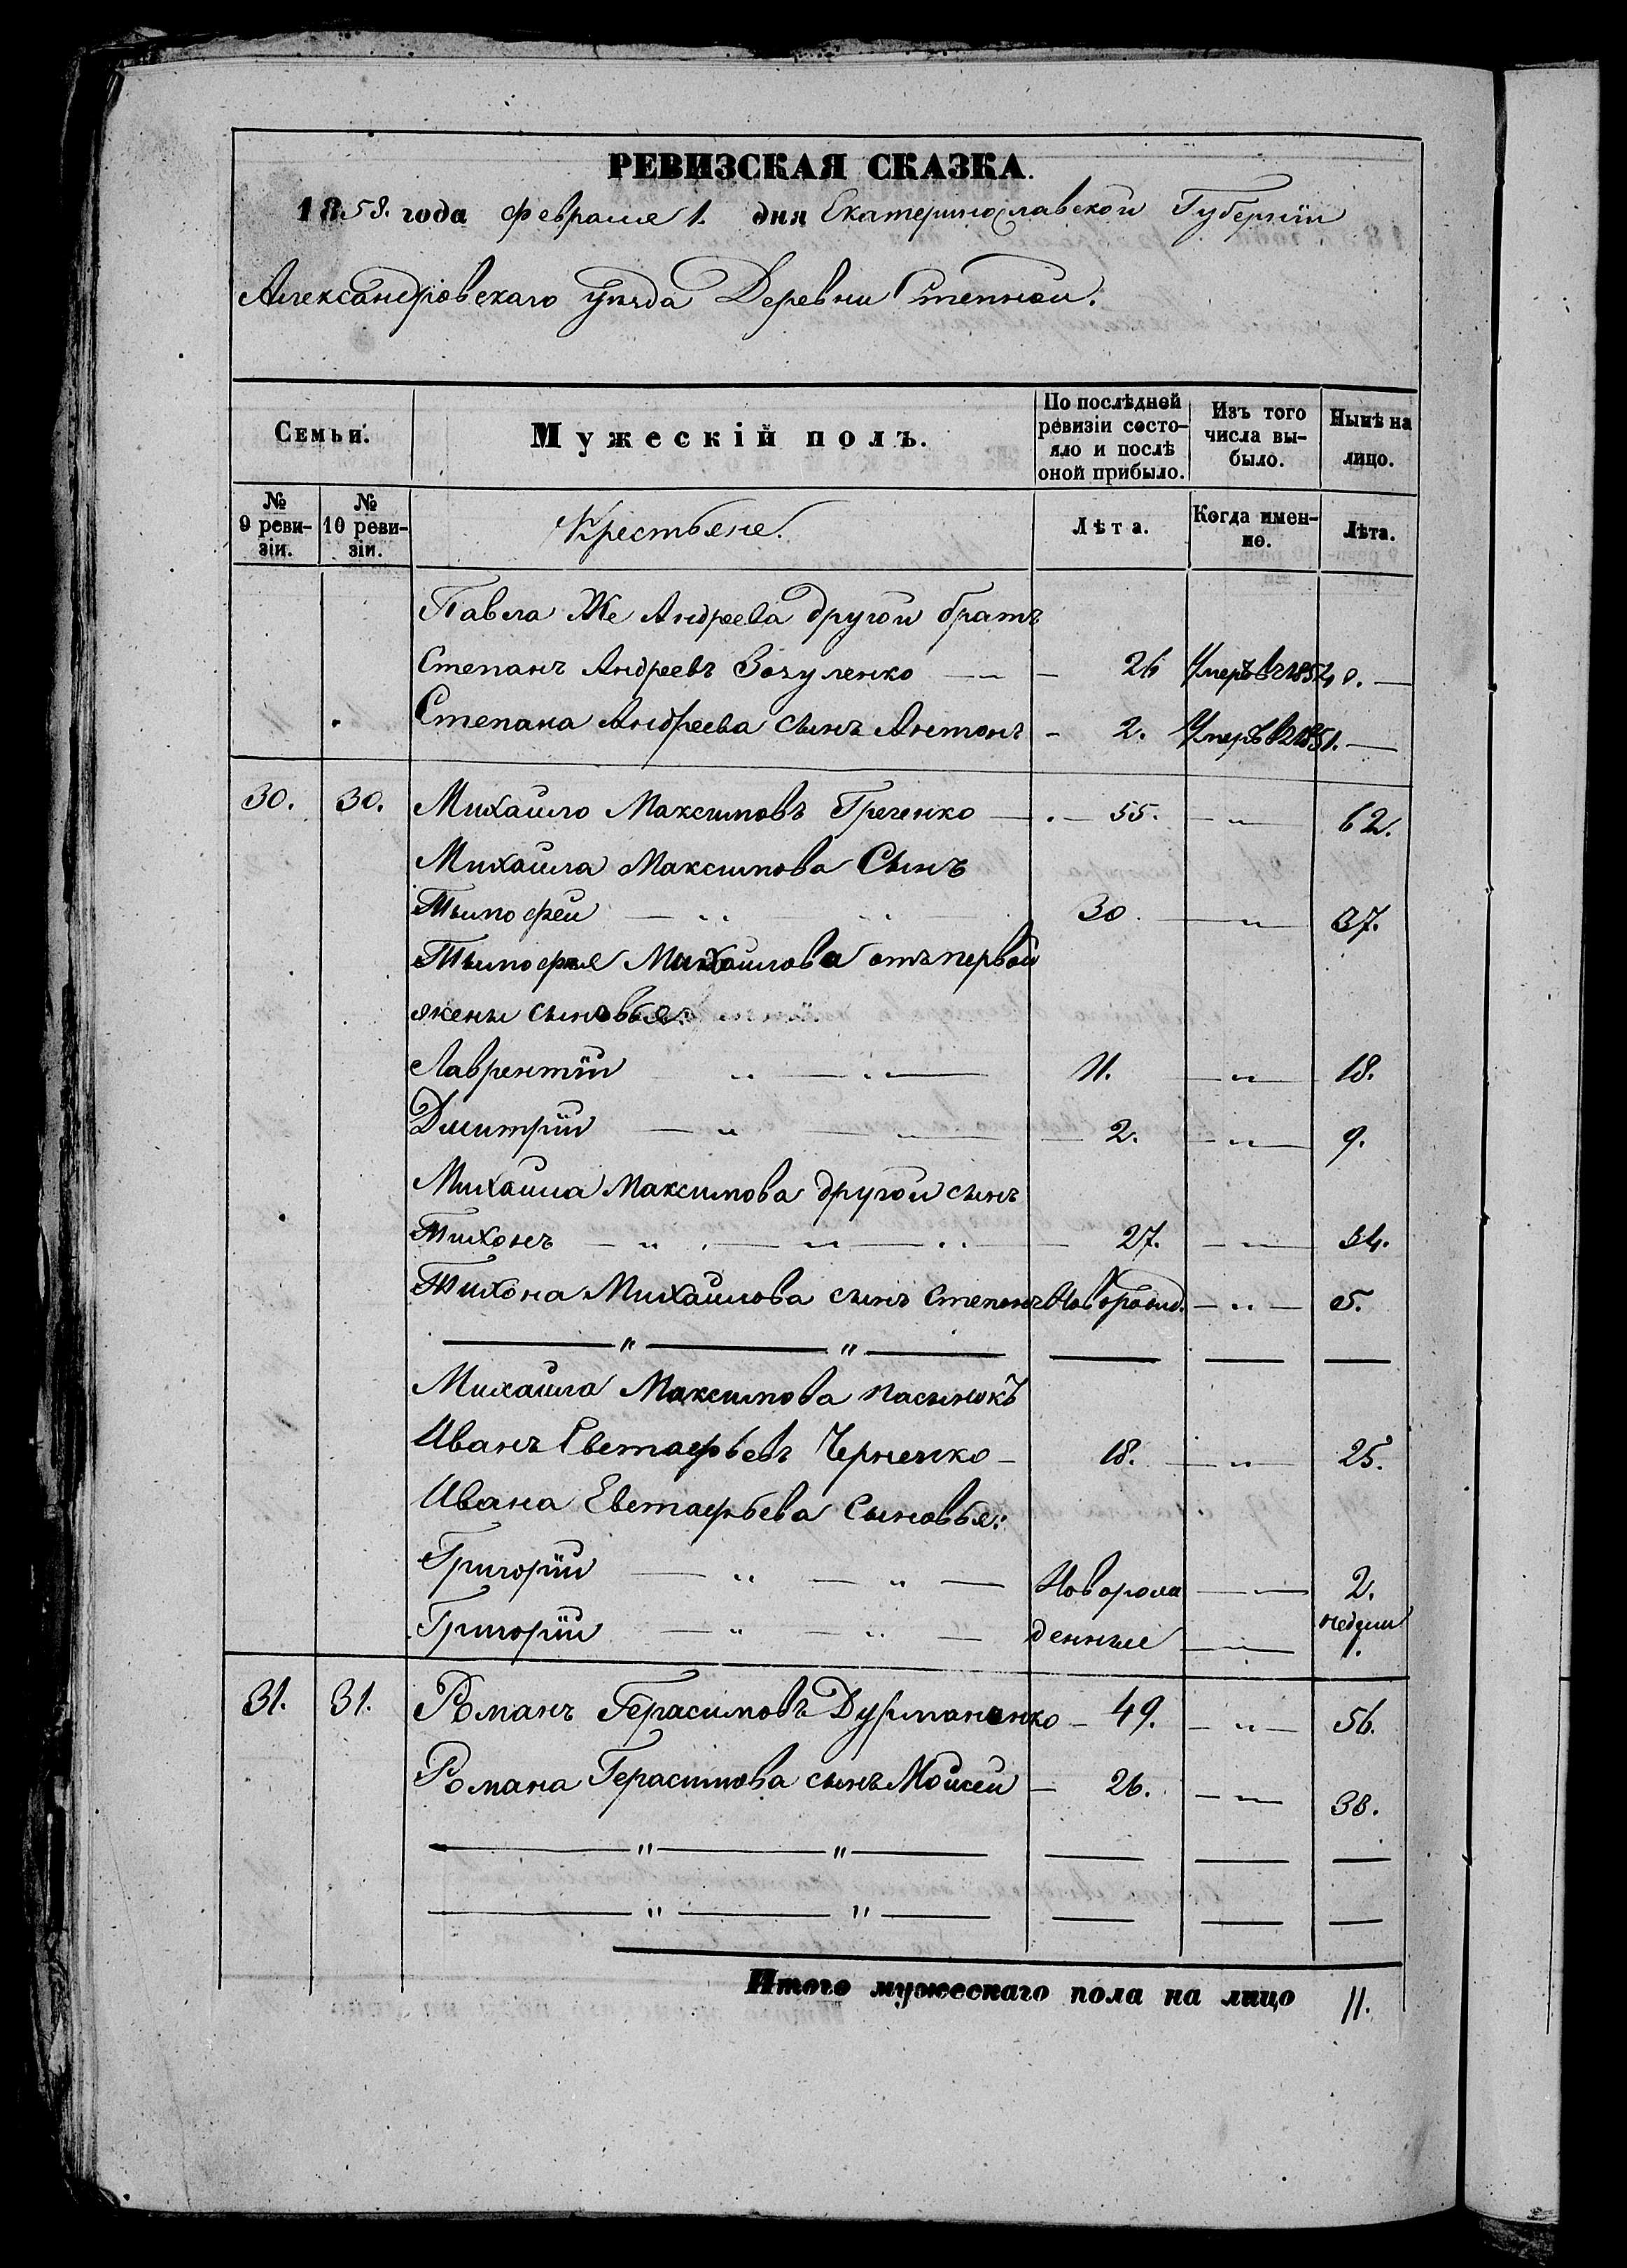 РЕВИЗСКАЯ СКАЗКА.
1858. года февраля 1. дня Екатеринославской Губерніи
Александровскаго уѣзда Деревни Степной.
Семьи.
Мужескій полъ.
По послѣдней ревизіи состояло и послѣ оной прибыло.
Изъ того числа выбыло.
Нынѣ на лицо.
№ 9 ревизіи.
№ 10 ревизіи.
Крестьяне.
Лѣта.
Когда именно.
Лѣта.
Павла Же Андреева другой братъ
Степанъ Андреевъ Зозуленко — 26 Умеръ въ 1854 г. —
Степана Андреева сынъ Антонъ — 2. Умеръ въ 1851. —
30. 30. Михайло Максимовъ Греченко — 55. — „ — 62.
Михайла Максимова Сынъ
Тымофей — „ „ 30. — „ — 37.
Тымофея Михайлова отъ первой
жены сыновья:
Лаврентій „ — „ — 11. — „ — 18.
Дмитрій — „ — — 2. — „ — 9.
Михайла Максимова другой сынъ
Тихонъ — „ — „ — „ — 27. — „ — 34.
Тихона Михайлова сынъ Степанъ Новорожд. — „ — 5.
— „ — „ — — — —
Михайла Максимова пасынокъ
Иванъ Евстафьевъ Черненко — 18. — „ — 25.
Ивана Евстафьева Сыновья:
Григорій — „ — „ — Новорож — „ — 2.
Григорій — „ — „ — денные — „ — недели 1.
31. 31. Романъ Герасимовъ Дурманенко — 49. — „ — 56.
Романа Герасимова сынъ Мойсей — 26. — „ — 33.
— „ — „ — — — —
— „ — „ — — — —
Итого мужескаго пола на лицо 11.